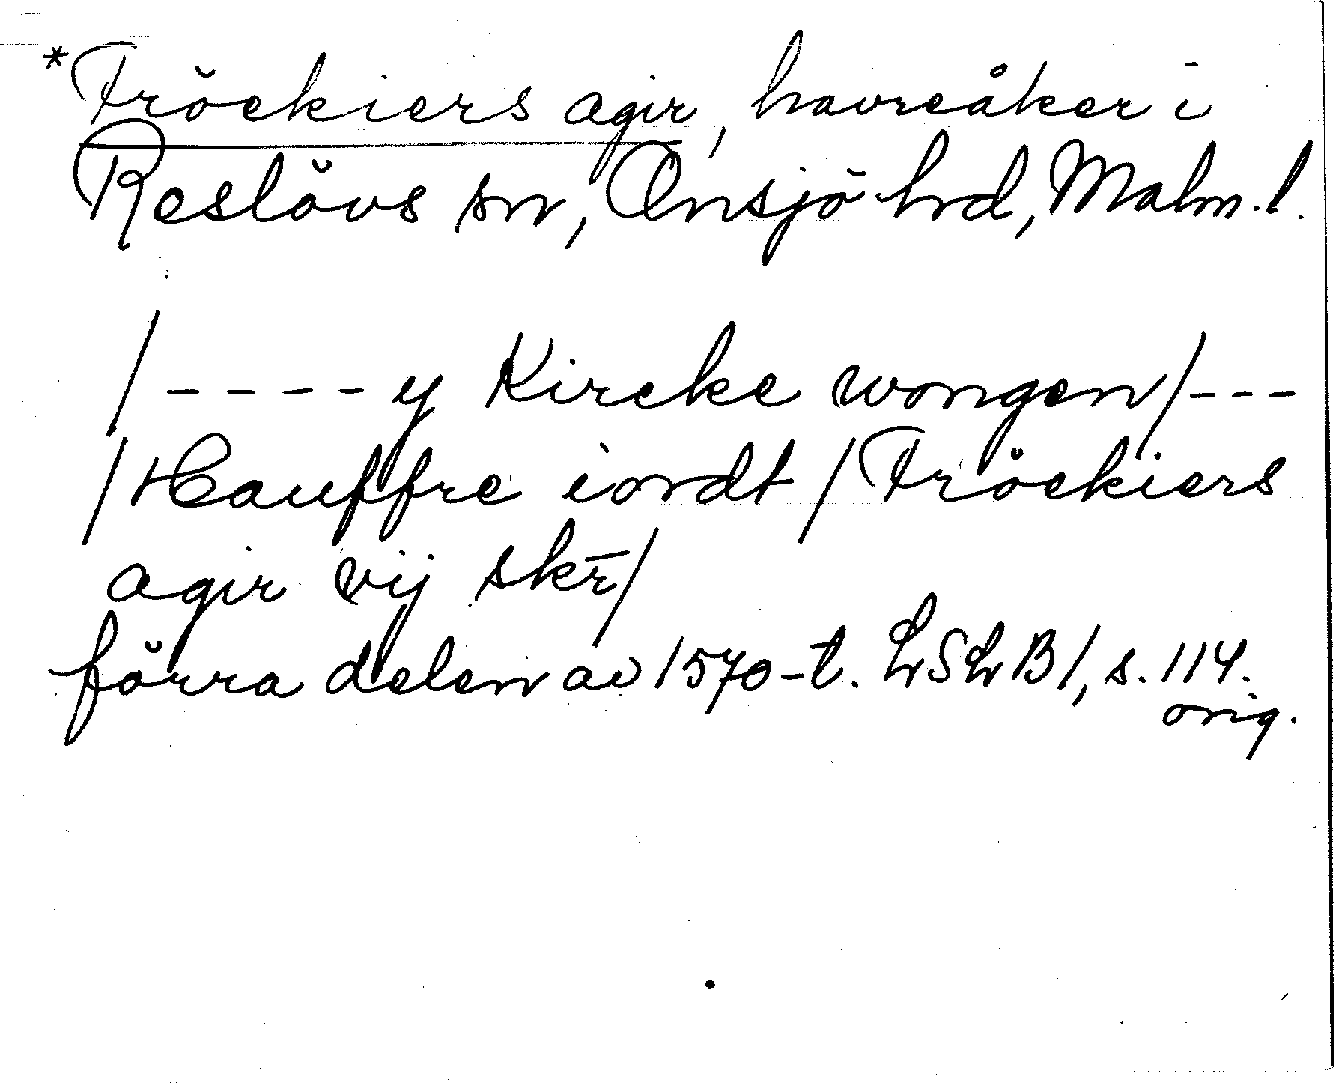 *Fröckiers agir, havreåker i
Reslövs sn, Onsjö hrd, Malm. l.
/ - - - - y Kircke wongen / - - -
/ Hauffre iordt / Fröckiers
agir vij skr̄ /
förra delen av 1570-t. LSLB 1, s. 114.
orig.